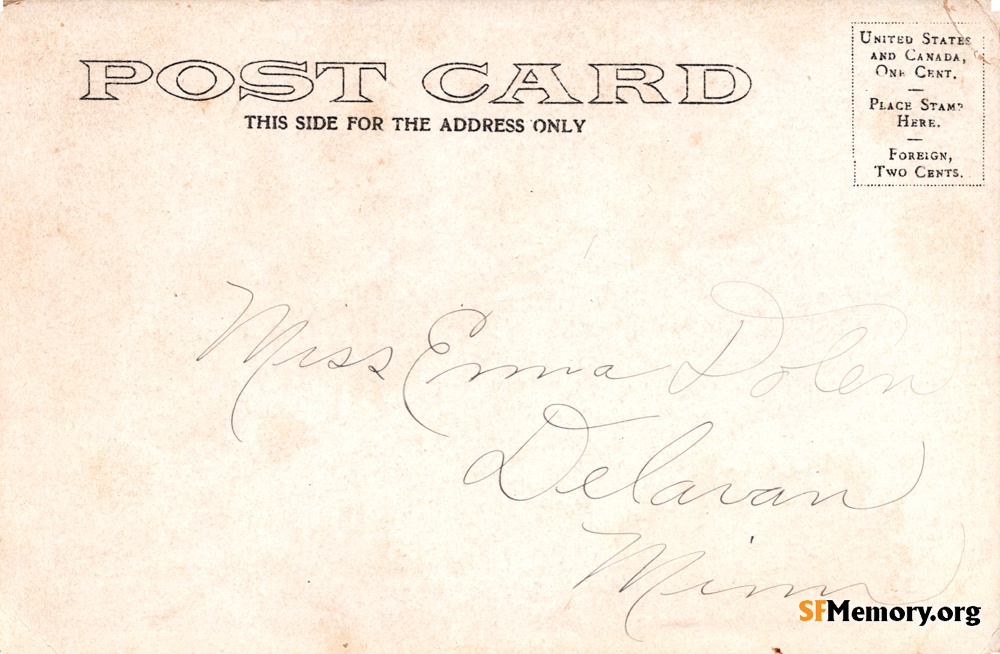 POST CARD
THIS SIDE FOR THE ADDRESS ONLY
UNITED STATES
AND CANADA,
ONE CENT.
—
PLACE STAMP
HERE.
—
FOREIGN,
TWO CENTS.
Miss Emma Dolen
Delavan
Minn
SFMemory.org